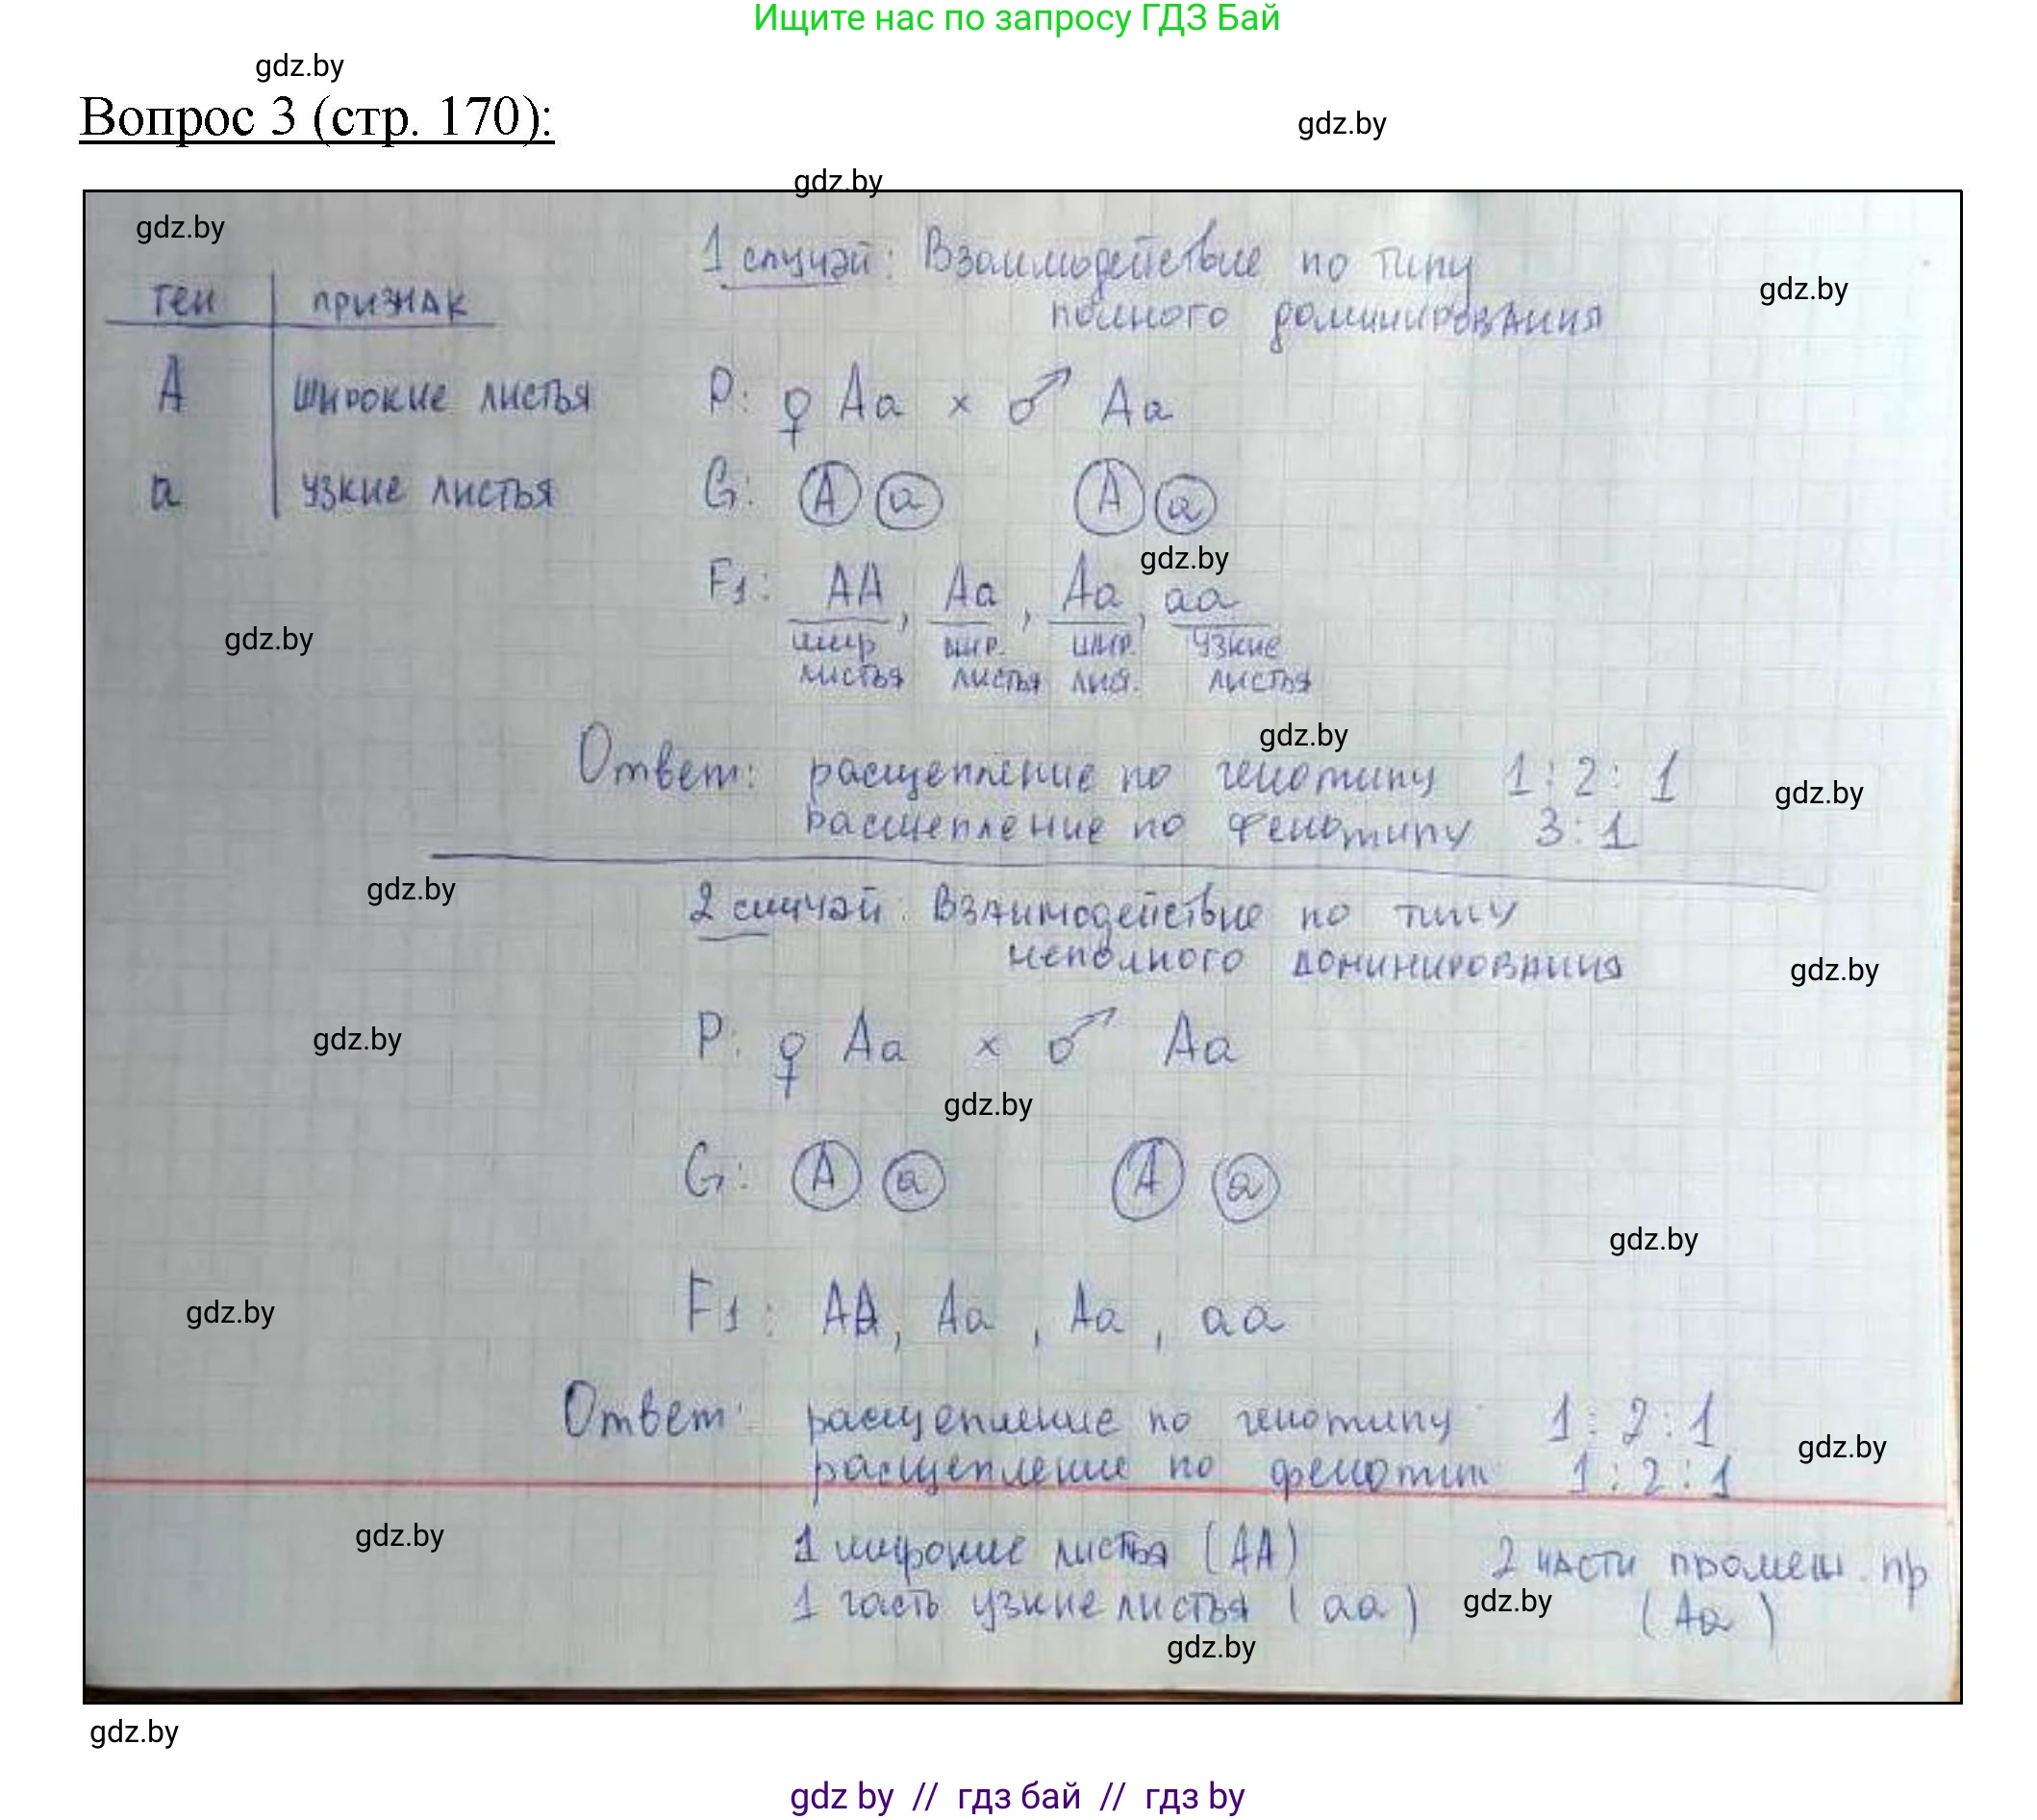 Ищите нас по запросу ГДЗ Бай
gdz.by
Вопрос 3 (стр. 170):
gdz.by
gdz.by
gdz.by
1 случай: Взаимодействие по типу
полного доминирования
gdz.by
ген признак
A широкие листья
P: ♀ Aa × ♂ Aa
a узкие листья
G: A a A a
gdz.by
F1: AA, Aa, Aa, aa
gdz.by
шир шир. шир. узкие
листья листья лис. листья
gdz.by
Ответ: расщепление по генотипу 1:2:1
gdz.by
расщепление по фенотипу 3:1
gdz.by
2 случай: Взаимодействие по типу
неполного доминирования
gdz.by
P: ♀ Aa × ♂ Aa
gdz.by
gdz.by
G: A a A a
gdz.by
F1: AA, Aa, Aa, aa
gdz.by
Ответ: расщепление по генотипу 1:2:1
gdz.by
расщепление по 1:2:1
gdz.by
1 широкие листья (AA) 2 части промеш. пр
1 часть узкие листья (aa) (Aa)
gdz.by
gdz.by
gdz.by
gdz by // гдз бай // гдз by